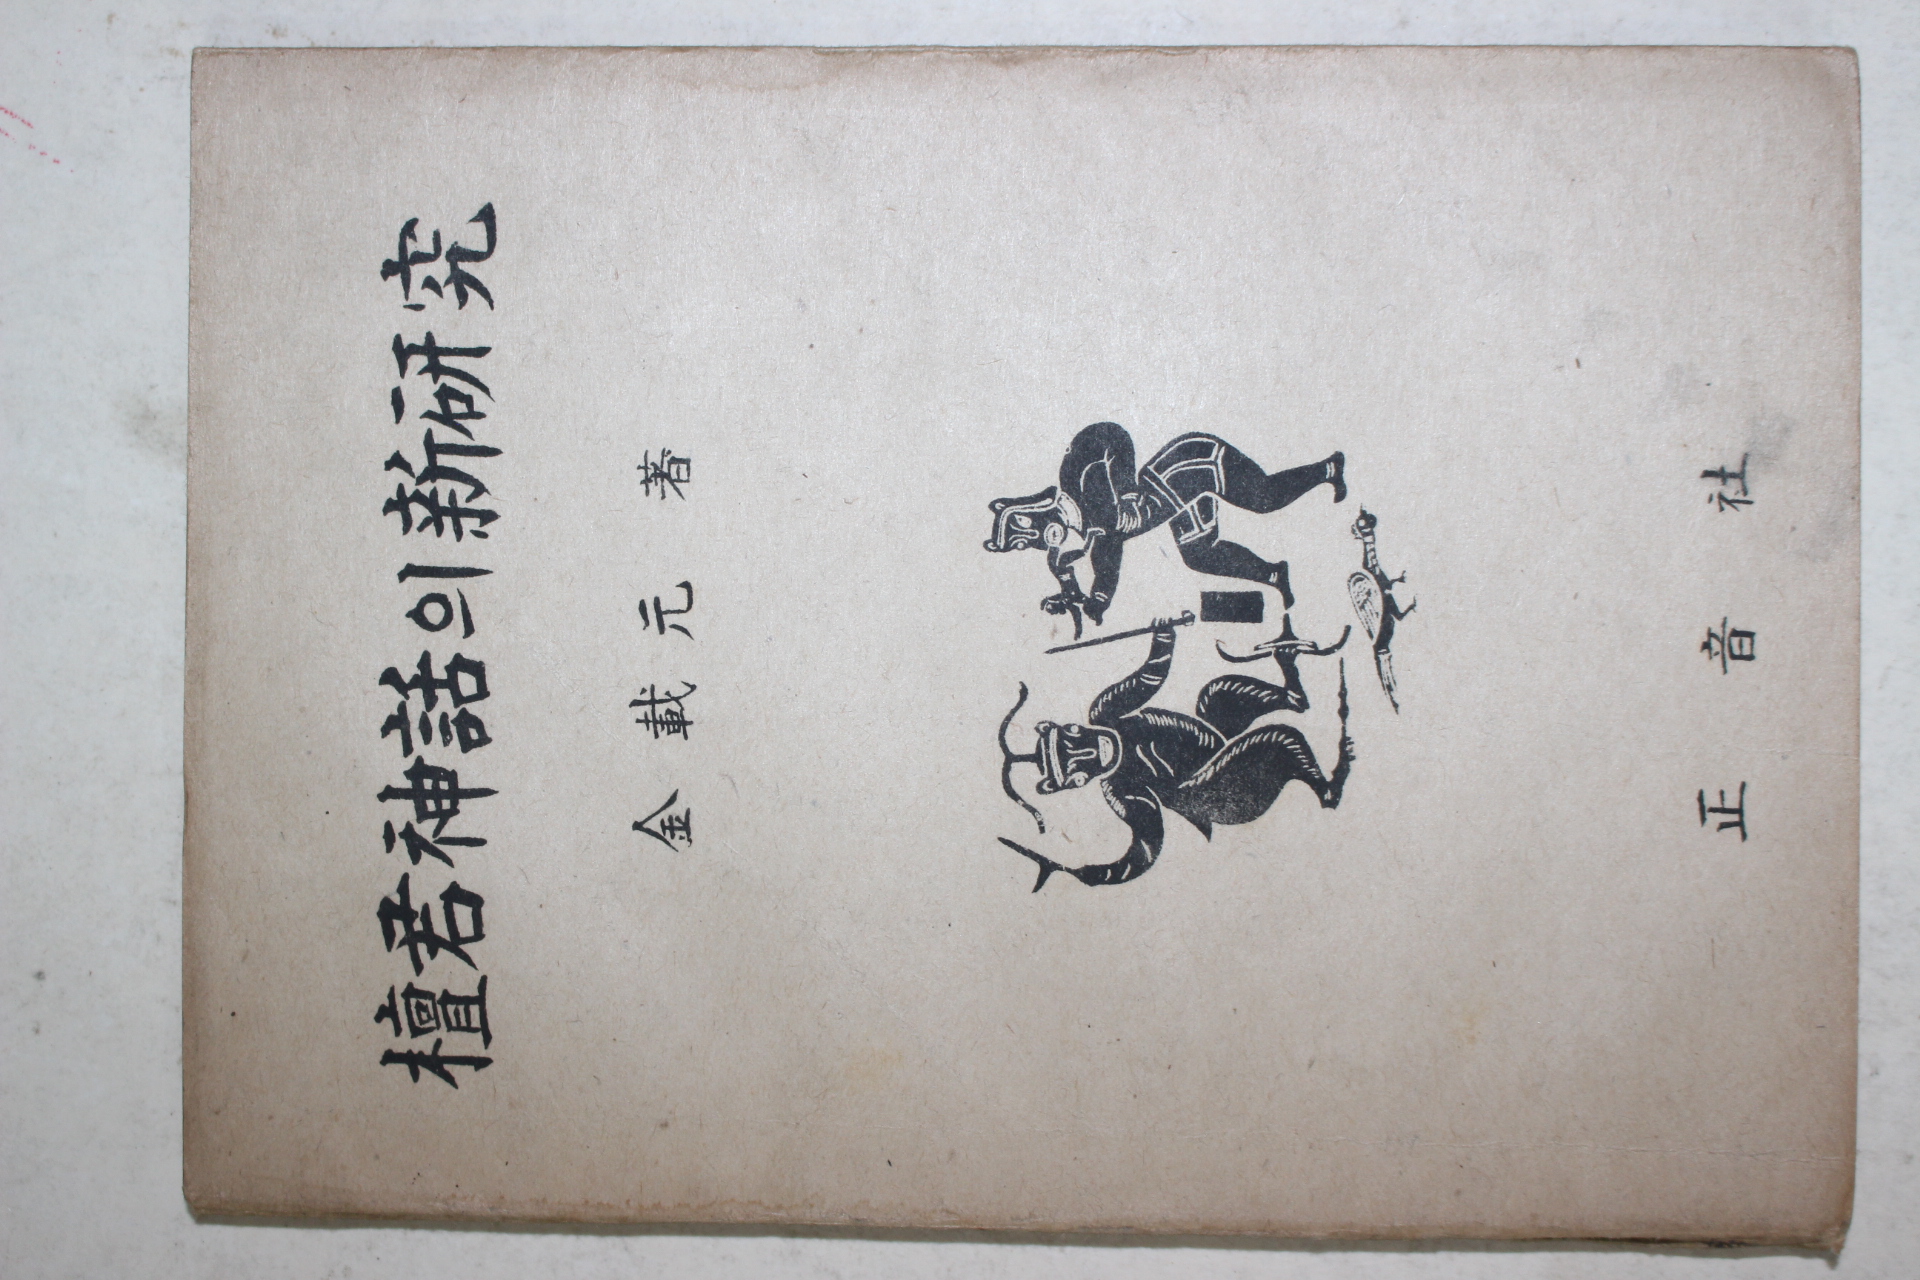 檀君神話의新研究
金載元 著
正音社